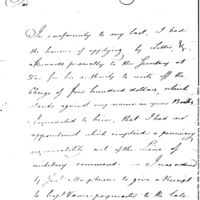 Sir
In conformity to my last, I had
the honour of applying by Letter, &
afterwards personally to the Secretary at
War for his authority to write off the
Charge of four hundred dollars which
stands against my name in your Books
I repeated to him, that I had no
appointment which implied a pecuniary
responsibility out of the Line of
military command — I was ordered
by Genl to give a Receipt
to Capt Vance paymaster to the late